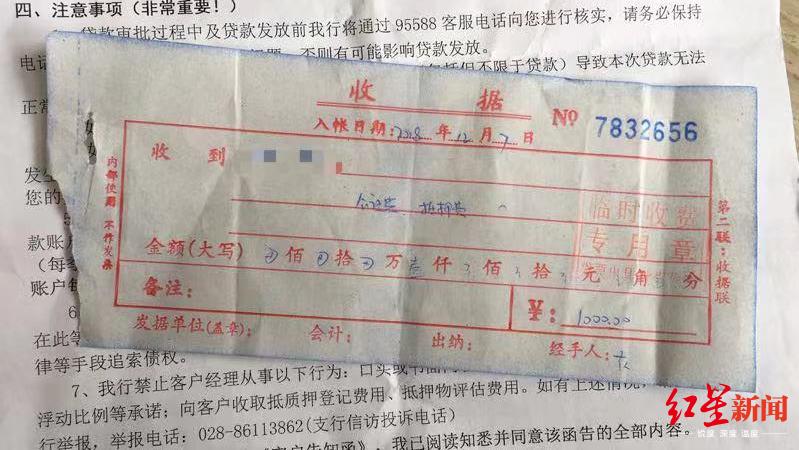 四、注意事项（非常重要！）
贷款审批过程中及贷款发放前我行将通过 95588 客服电话向您进行核实，请务必保持
电话
否则有可能影响贷款发放。
包括但不限于贷款）导致本次贷款无法
正常
收 据
№ 7832656
入帐日期：2018 年 12 月 7 日
收 到
内部使用 不作发票
公证费 抵押费
临时收费
专用章
第二联：收据联
金额(大写) 佰 拾 万 壹 仟 佰 拾 元 角 分
备注：
￥： 1000.00
发据单位(盖章)： 会计： 出纳： 经手人：
发生
您的
款账户
（每
账户
6
在此
律等手段追索债权。
7、我行禁止客户经理从事以下行为：口头或书面
浮动比例等承诺；向客户收取抵质押登记费用、抵押物评估费用。如有上述情况，
行举报，举报电话：028-86113862(支行信访投诉电话)
客户告知函》，我已阅读知悉并同意该函告的全部内容。
红星新闻
锐度 深度 温度